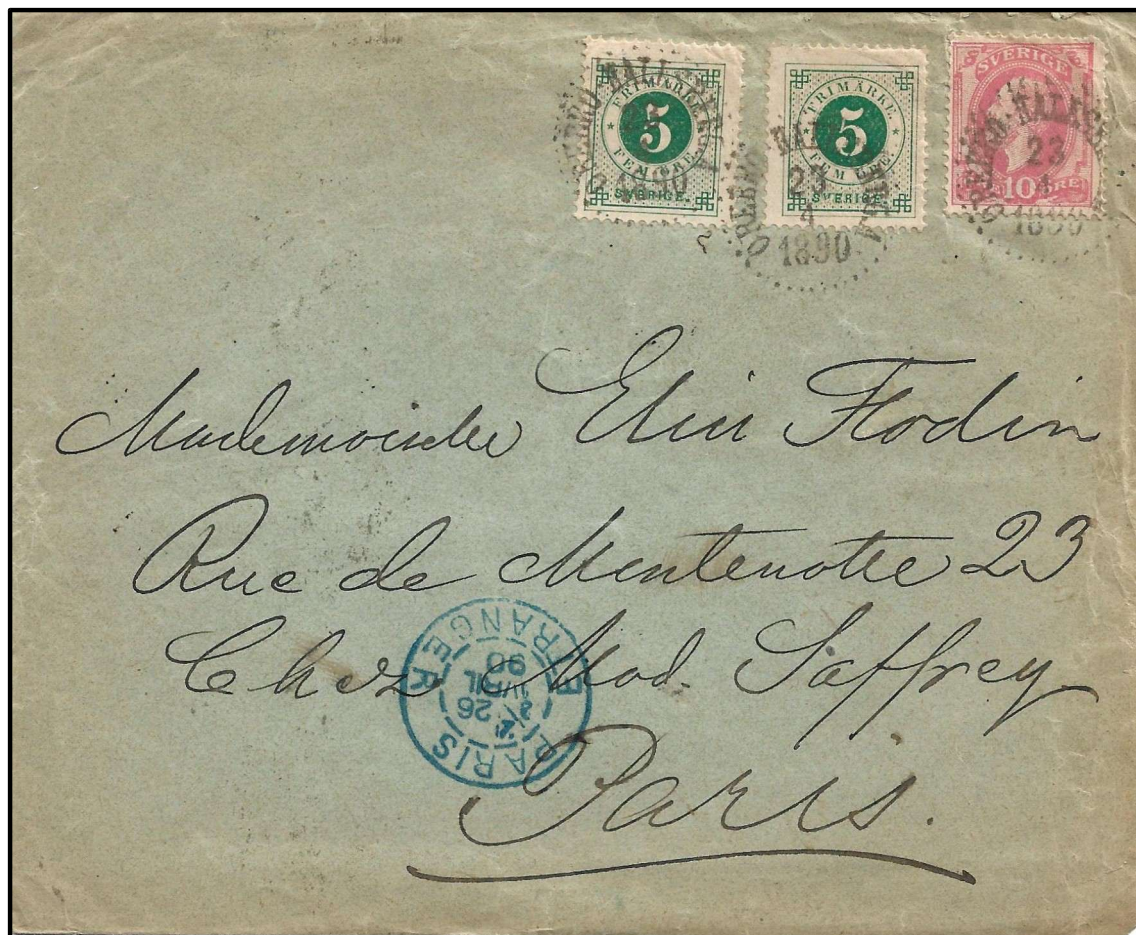 FRIMÄRKE
5
FEM ÖRE
SVERIGE.
FRIMÄRKE
5
FEM ÖRE
SVERIGE.
SVERIGE
10 ÖRE
23
4
1890
23
4
1890
Mademoiselle Elin Flodin
Rue de Montenotte 23
Chez Mad. Saffrey
Paris.
PARIS ETRANGER
26
AVRIL
90